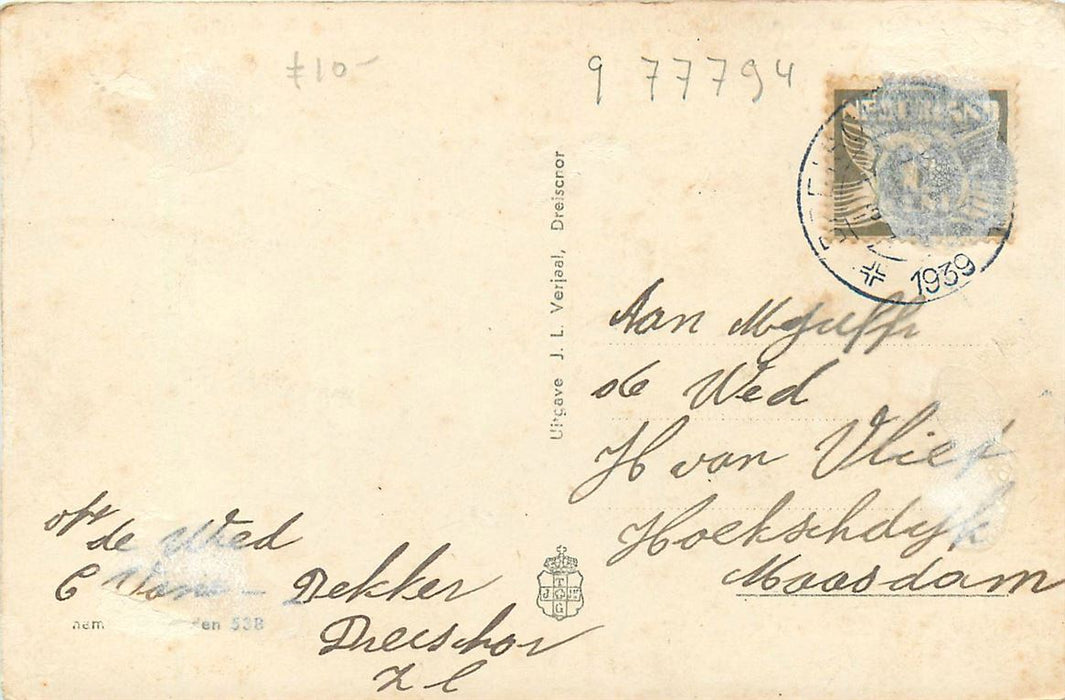 £10-
9 77794
NEDERLAND
1939
Uitgave J. L. Verjaal, Dreischor
Aan Mejuffr
de Wed
H van Vliet
Hoekschdyk
Maasdam
afz
de Wed
C Dekker
Dreischor
Zl
J T G
538